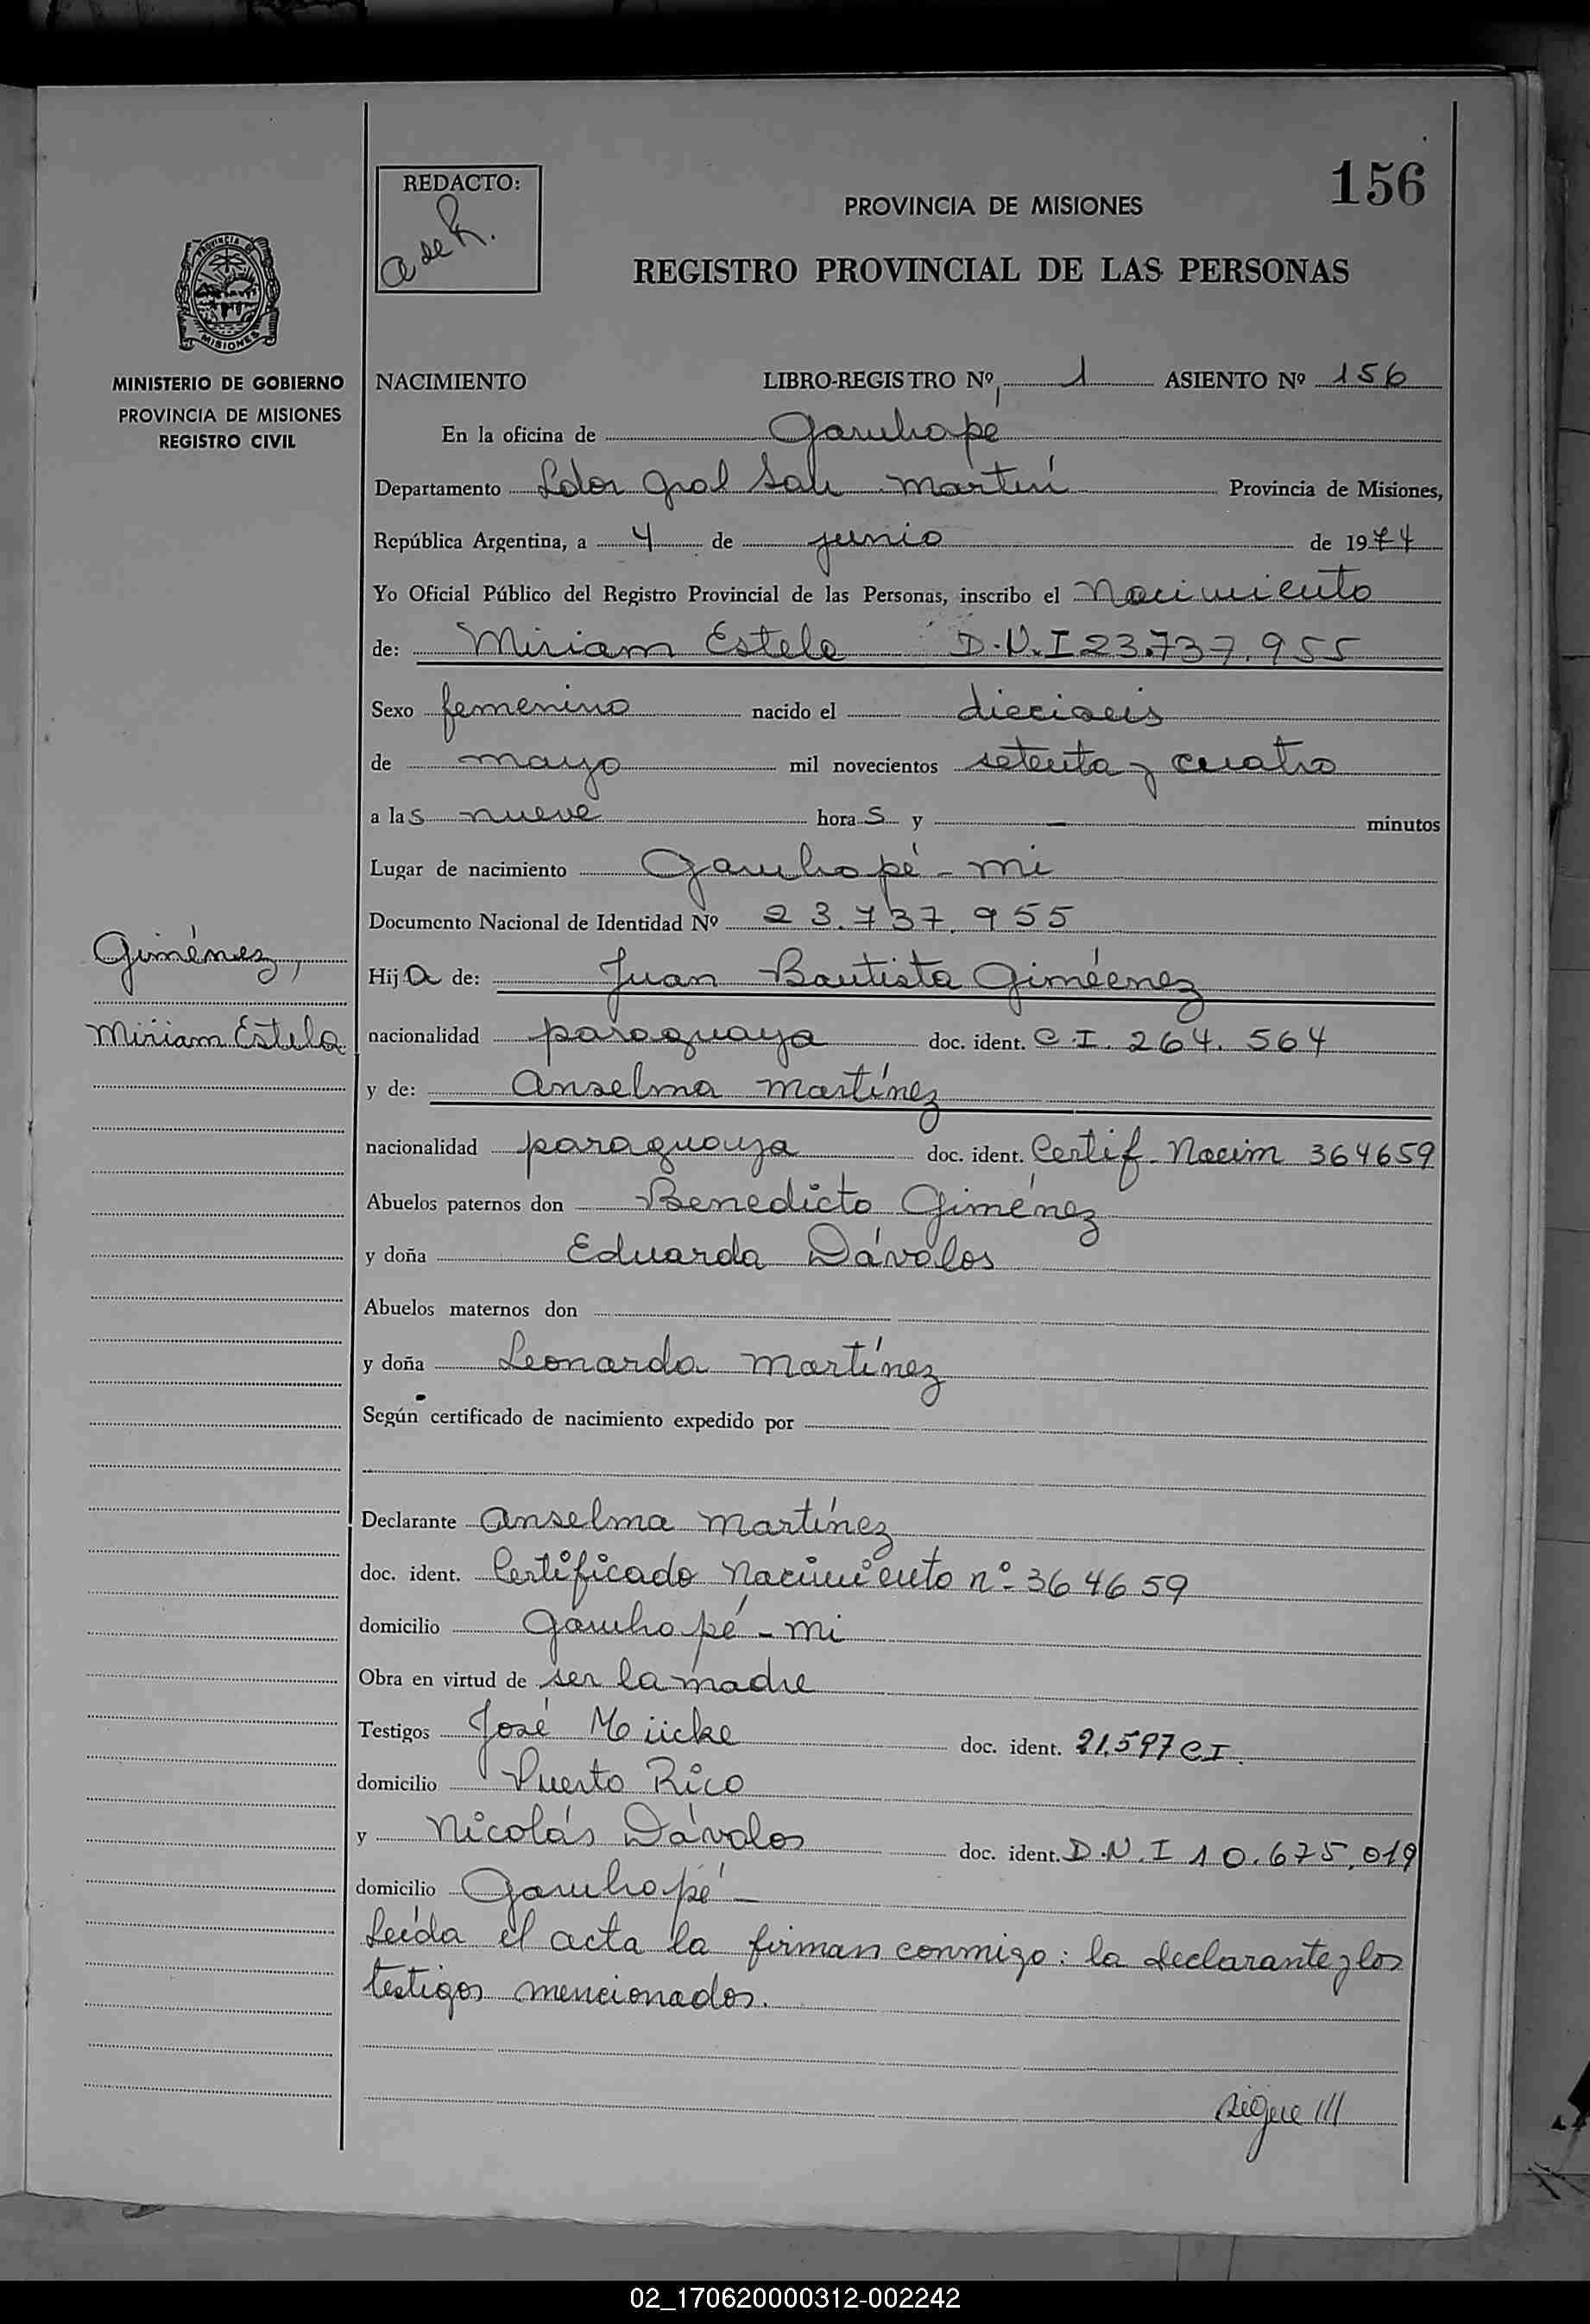 156
REDACTO:
a de R.
PROVINCIA DE MISIONES
REGISTRO PROVINCIAL DE LAS PERSONAS
PROVINCIA DE
MISIONES
MINISTERIO DE GOBIERNO
PROVINCIA DE MISIONES
REGISTRO CIVIL
NACIMIENTO LIBRO-REGISTRO Nº 1 ASIENTO Nº 156
En la oficina de Garuhapé
Departamento Ldor Gral San Martín Provincia de Misiones,
República Argentina, a 4 de junio de 1974
Yo Oficial Público del Registro Provincial de las Personas, inscribo el Nacimiento
de: Miriam Estela D.N.I 23.737.955
Sexo femenino nacido el dieciseis
de mayo mil novecientos setenta y cuatro
a las nueve horas y — minutos
Lugar de nacimiento Garuhapé - Mi
Documento Nacional de Identidad Nº 23.737.955
Giménez,
Miriam Estela
Hija de: Juan Bautista Giméenez
nacionalidad paraguaya doc. ident. C.I. 264.564
y de: Anselma Martínez
nacionalidad paraguaya doc. ident. Certif. Nacim 364659
Abuelos paternos don Benedicto Giménez
y doña Eduarda Dávalos
Abuelos maternos don
y doña Leonarda Martínez
Según certificado de nacimiento expedido por
Declarante Anselma Martínez
doc. ident. Certificado Nacimiento nº 364659
domicilio Garuhapé - Mi
Obra en virtud de ser la madre
Testigos José Mücke doc. ident. 21.597 C.I.
domicilio Puerto Rico
y Nicolás Dávalos doc. ident. D.N.I 10.675.019
domicilio Garuhapé -
Leída el acta la firman conmigo: la declarante y los
testigos mencionados.
sigue ///
02_170620000312-002242